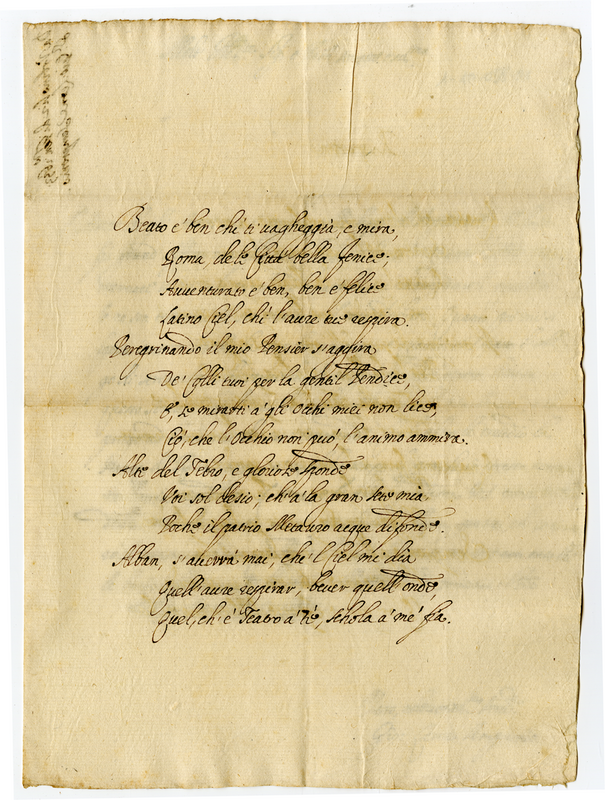 Beato é ben chi ti vagheggia, e mira,
Roma, de le Città bella fenice;
Avventurato é ben, ben é felice
Latino Ciel, chi l'aure tue respira.
Peregrinando il mio Pensier s'aggira
De' Colli tuoi per la gentil Pendice,
E se mirarti á gli Occhi miei non lice,
Ció, che l'Occhio non puó, l'animo ammira.
Alte del Tebro, e gloriose sponde
Voi sol desio; ch'á la gran sete mia
Poche il patrio Metauro acque difonde.
Alban, s'averrá mai, che 'l Ciel mi dia
Quell'aure respirar, bever quell'onde,
Quel, ch'é Teatro á Té, schola á mé fia.